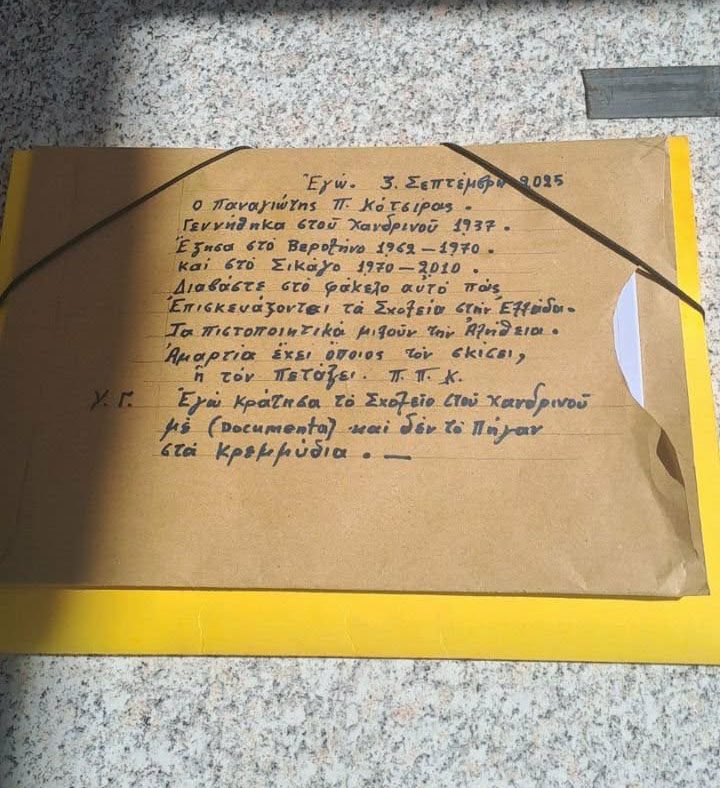 Ἐγώ. 3. Σεπτέμβρη 2025
ο Παναγιώτης Π. Κότσιρας.
Γεννήθηκα στοῦ Χανδρινοῦ 1937.
Ἐζησα στό Βεροζίνο 1962-1970.
καί στό Σικάγο 1970-2010.
Διαβάστε στό φάκελο αὐτό πῶς
Ἐπισκευάζονται τά Σχολεία στήν Ἑλλάδα.
Τα πιστοποιητικά μιλοῦν τήν Ἀλήθεια.
Ἁμαρτία ἔχει ὅποιος τόν σκίσει,
ἤ τόν Πετάξει. Π. Π. Κ.
Υ. Γ. Ἐγώ κράτησα τό Σχολεῖο στοῦ Χανδρινοῦ
μέ (Documenta) καί δέν τό Πῆγαν
στά Κρεμμύδια. —